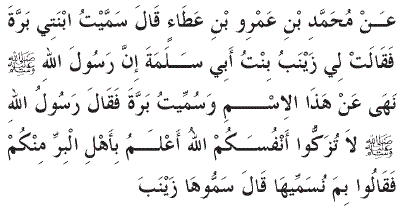 عَـنْ مُحَمَّدِ بْنِ عَمْرِو بْنِ عَطَاءٍ قَالَ سَمَّيْتُ ابْنَتِي بَرَّةَ
فَقَالَتْ لِي زَيْنَبُ بِنْتُ أَبِي سَـلَمَةَ إِنَّ رَسُولَ اللهِ ﷺ
نَهَى عَنْ هَذَا الِاسْـــمِ وَسُمِّيتُ بَرَّةَ فَقَالَ رَسُولُ اللهِ
ﷺ لَا تُزَكُّوا أَنْفُسَـكُمْ اللهُ أَعْلَـمُ بِأَهْلِ الْبِرِّ مِنْكُمْ
فَقَالُوا بِمَ نُسَمِّيهَا قَالَ سَمُّوهَا زَيْنَبَ